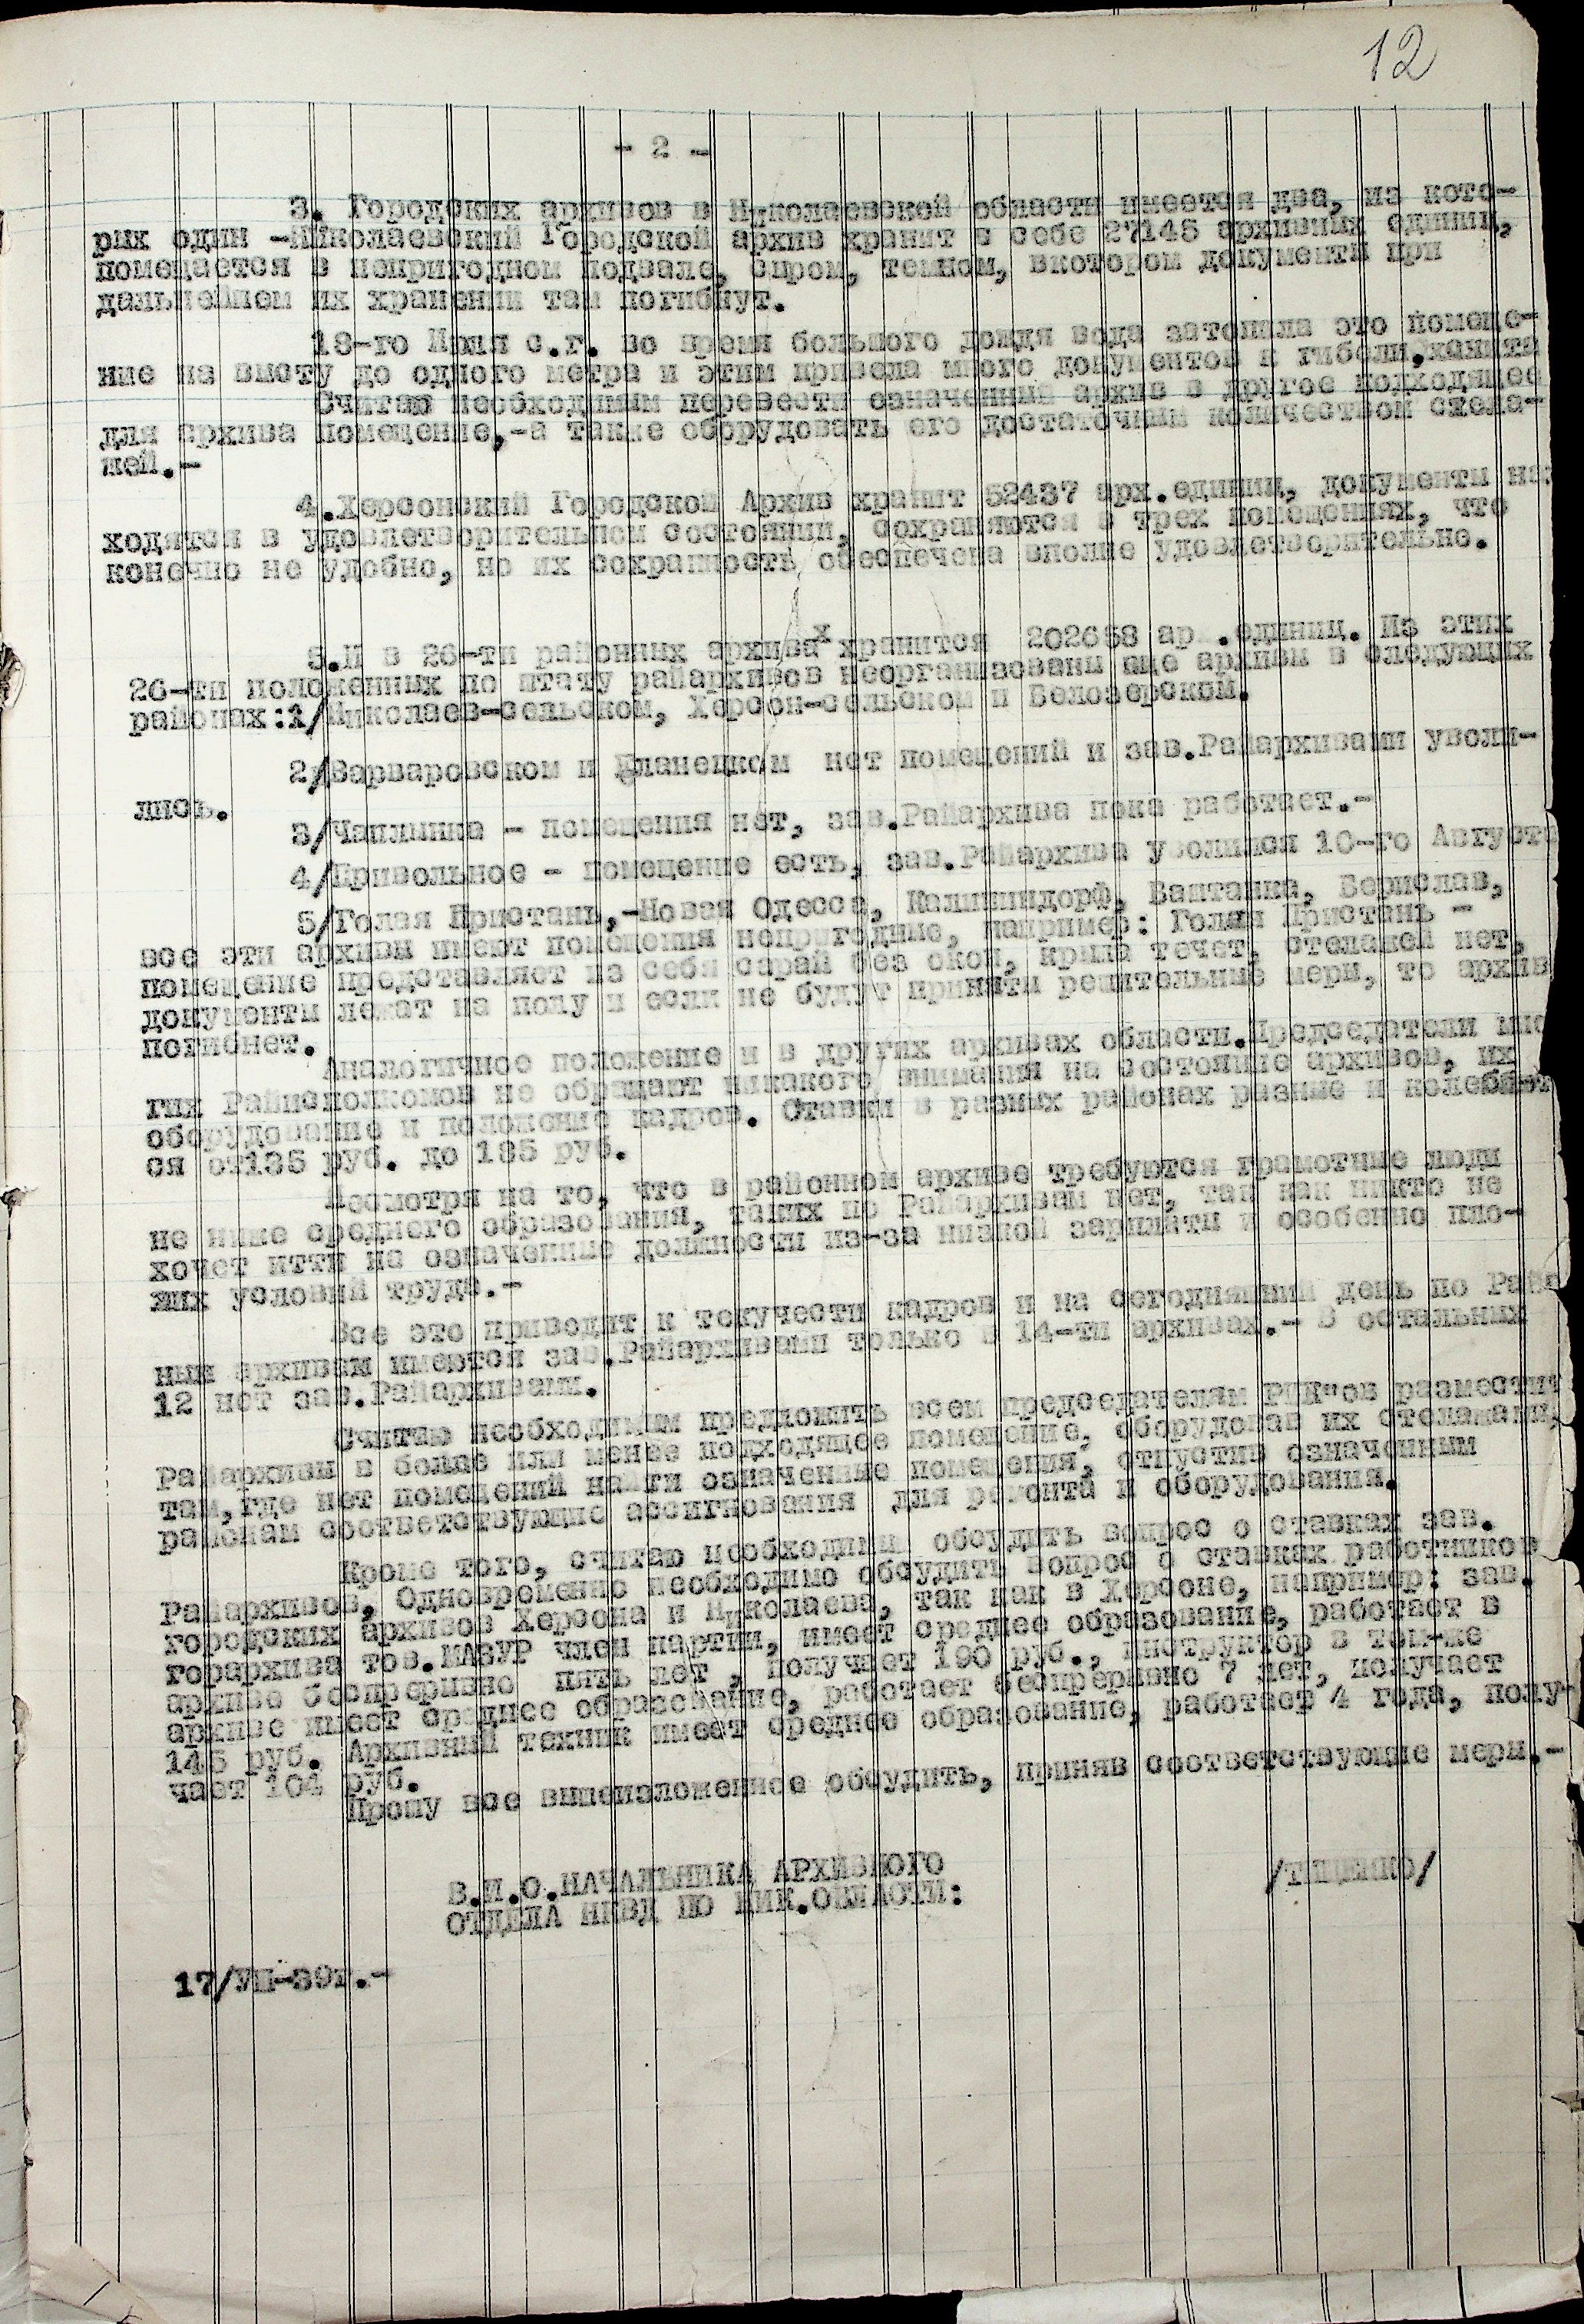 12
- 2 -
3. Городских архивов в Николаевской области имеется два, из кото-
рых один -Николаевский Городской архив хранит в себе 27145 архивных единиц,
помещается в непригодном подвале, сыром, темном, вкотором документы при
дальнейшем их хранении там погибнут.
18-го Июля с.г. во время большого дождя вода затопила это помеще-
ние на высоту до одного метра и этим привела много документов к гибели,
Считаю необходимым перевести означенный архив в другое подходящее
для архива помещение,-а также оборудовать его достаточным количеством стела-
жей.-
4.Херсонский Городской Архив хранит 52437 арх.единиц, документы на-
ходятся в удовлетворительном состоянии, сохраняются в трех помещениях, что
конечно не удобно, но их сохранность обеспечена вполне удовлетворительно.
5.И в 26-ти районных архивах хранится 202658 ар .единиц. Из этих
26-ти положенных по штату райархивов неорганизованы еще архивы в следующих
районах:1/Николаев-сельском, Херсон-сельском и Белозерской.
2/Варваровском и Еланецком нет помещений и зав.Райархивами уволи-
лись.
3/Чаплынка - помещения нет, зав.Райархива пока работает.-
4/Привольное - помещение есть, зав.Райархива уволился 10-го Августа
5/Голая Пристань,-Новая Одесса, Калининдорф, Баштанка, Берислав,
все эти архивы имеют помещения непригодные, например: Голая Пристань -
помещение представляет из себя сарай без окон, крыша течет, стелажей нет,
документы лежат на полу и если не будут приняты решительные меры, то архив
погибнет.
Аналогичное положение и в других архивах области.Председатели мно
гих Райисполкомов не обращают никакого внимания на состояние архивов, их
оборудование и положение кадров. Ставки в разных районах разные и колеблют
ся от135 руб. до 185 руб.
Несмотря на то, что в районном архиве требуются грамотные люди
не ниже среднего образования, таких по Райархивам нет, так как никто не
хочет итти на означенные должности из-за низкой зарплаты и особенно пло-
хих условий труда.-
Все это приводит к текучести кадров и на сегодняшний день по Райо
ным архивам имеются зав.Райархивами только в 14-ти архивах.- В остальных
12 нет зав.Райархивами.
Считаю необходимым предложить всем председателям РИК"ов разместит
Райархивы в более или менее подходящее помещение, оборудовав их стелажами,
там,где нет помещений найти означенные помещения, отпустив означенным
районам соответствующие ассигнования для ремонта и оборудования.
Кроме того, считаю необходимым обсудить вопрос о ставках зав.
Райархивов, Одновременно необходимо обсудить вопрос о ставках работников
городских архивов Херсона и Николаева, так как в Херсоне, например: зав.
горархива тов.МАЗУР член партии, имеет среднее образование, работает в
архиве беспрерывно пять лет , получает 190 руб., инструктор в том-же
архиве имеет среднее образование, работает беспрерывно 7 лет, получает
145 руб. Архивный техник имеет среднее образование, работает 4 года, полу-
чает 104 руб.
Прошу все вышеизложенное обсудить, приняв соответствующие меры.-
В.И.О.НАЧАЛЬНИКА АРХИВНОГО
ОТДЕЛА НКВД ПО НИК.ОБЛАСТИ: /ТИЩЕНКО/
17/УШ-39г.-